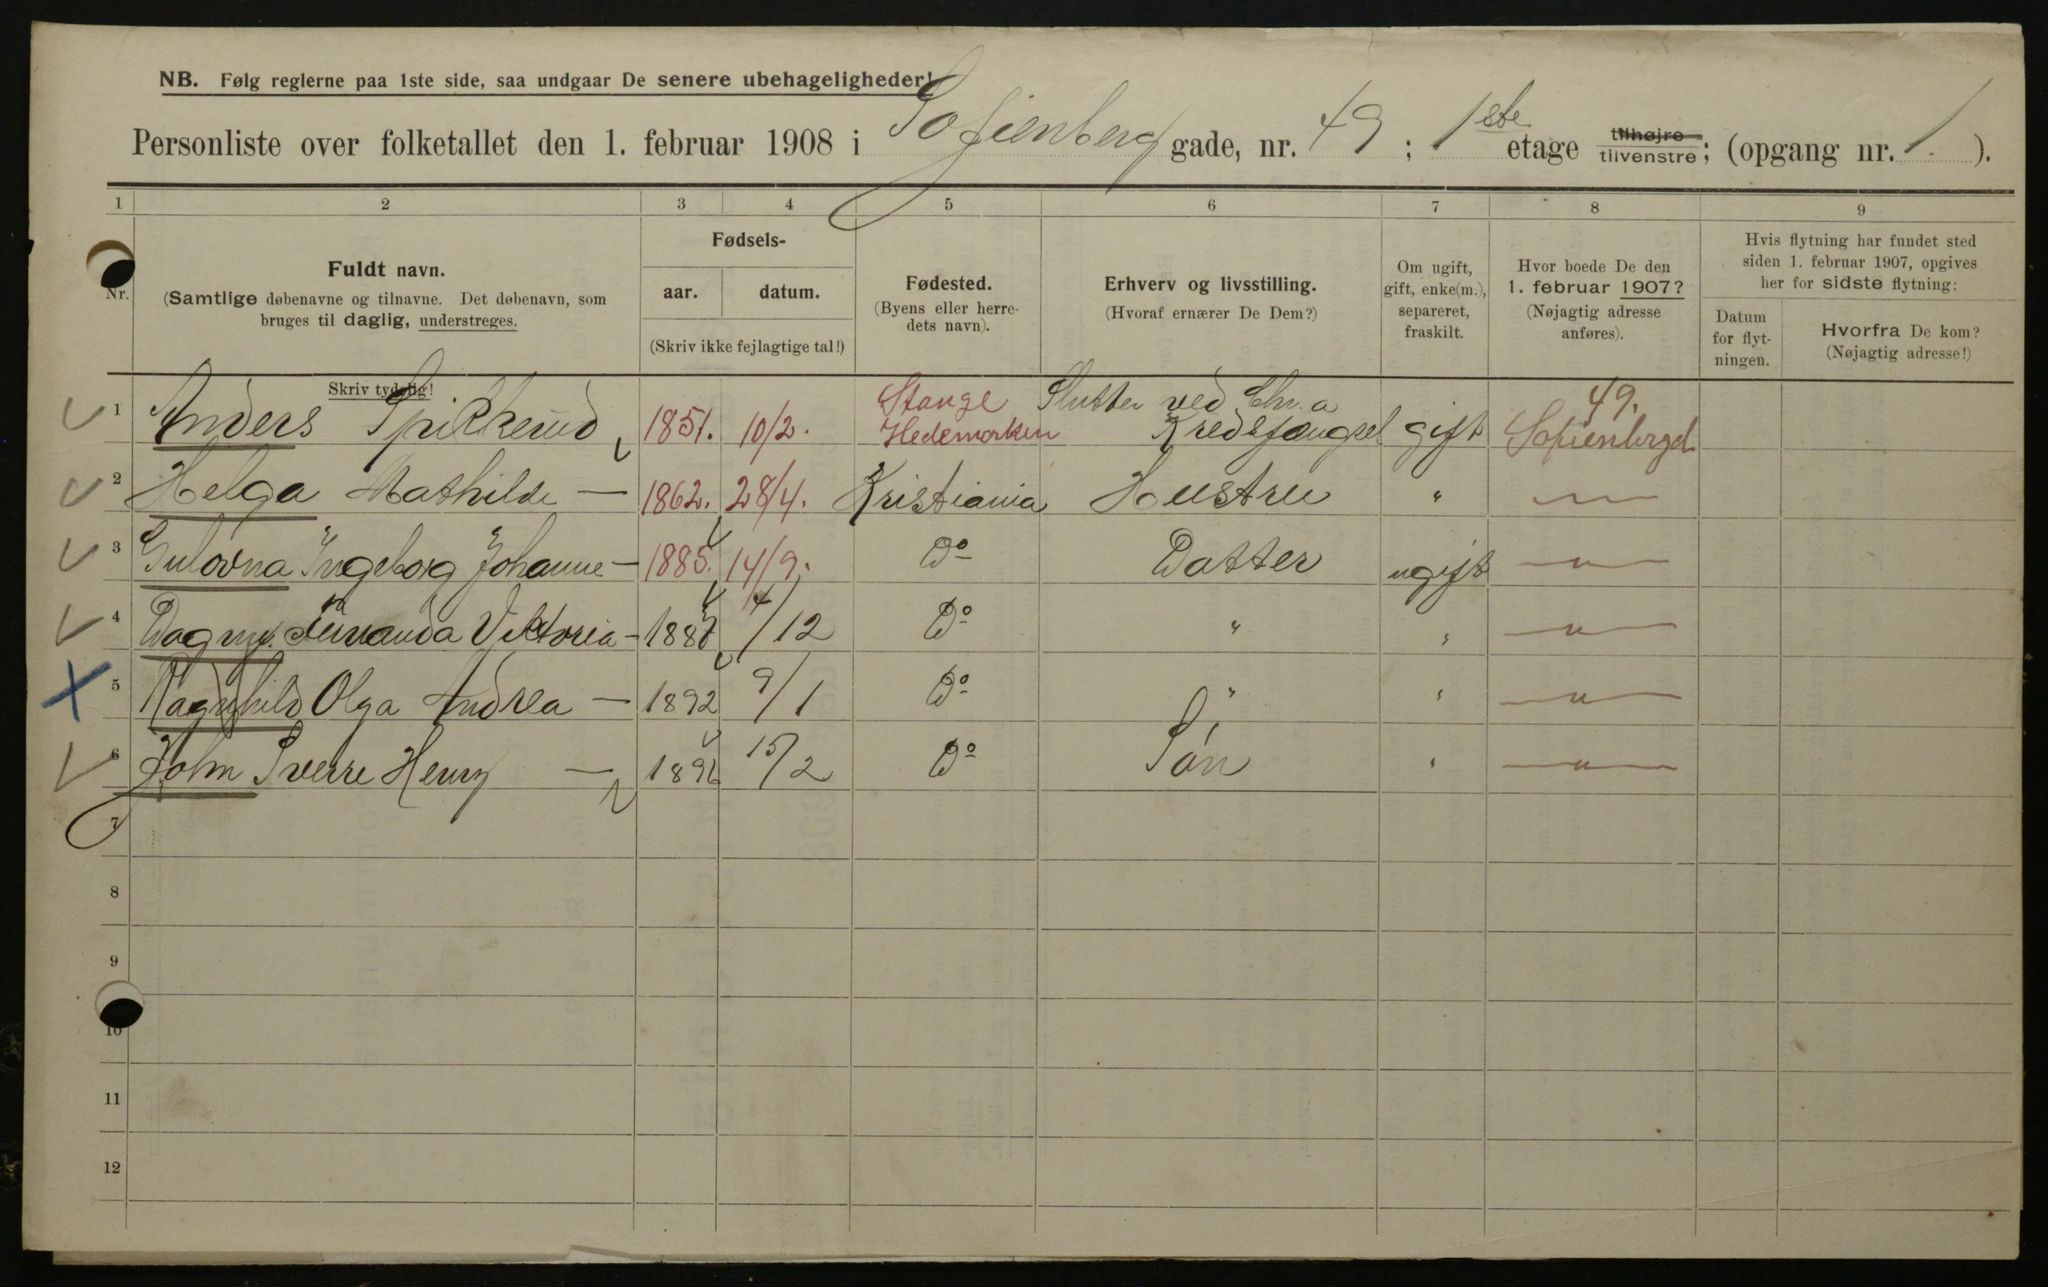 NB. Følg reglerne paa 1ste side, saa undgaar De senere ubehageligheder!
Personliste over folketallet den 1. februar 1908 i Sofienberg gade, nr. 49 ; 1ste etage tilhøjre tilvenstre; (opgang nr. 1 ).
1 2 3 4 5 6 7 8 9
Nr.
Fuldt navn.
(Samtlige døbenavne og tilnavne. Det døbenavn, som
bruges til daglig, understreges.
Skriv tydelig!
Fødsels-
aar. datum.
(Skriv ikke fejlagtige tal!)
Fødested.
(Byens eller herre-
dets navn).
Erhverv og livsstilling.
(Hvoraf ernærer De Dem?)
Om ugift,
gift, enke(m.),
separeret,
fraskilt.
Hvor boede De den
1. februar 1907?
(Nøjagtig adresse
anføres).
Hvis flytning har fundet sted
siden 1. februar 1907, opgives
her for sidste flytning:
Datum
for flyt-
ningen.
Hvorfra De kom?
(Nøjagtig adresse!)
1 Anders Spikkerud 1851. 10/2. Stange Hedemarken Slutter ved Chr.a Kredsfængsel gift 49. Sofienbergd
2 Helga Mathilde — 1862. 28/4. Kristiania Hustru " — " —
3 Gulovna Ingeborg Johanne — 1885. 14/9. Do Datter ugift — " —
4 Dagny Fernanda Viktoria — 1887 4/12 Do " " — " —
5 Ragnhild Olga Andrea — 1892 9/1 Do " " — " —
6 John Sverre Henry — 1896 15/2 Do Søn " — " —
7
8
9
10
11
12